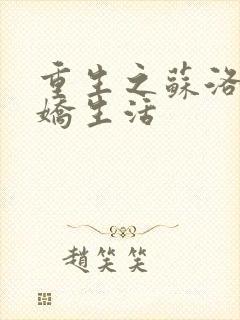 重生之蘇洛
嬌生活
趙笑笑